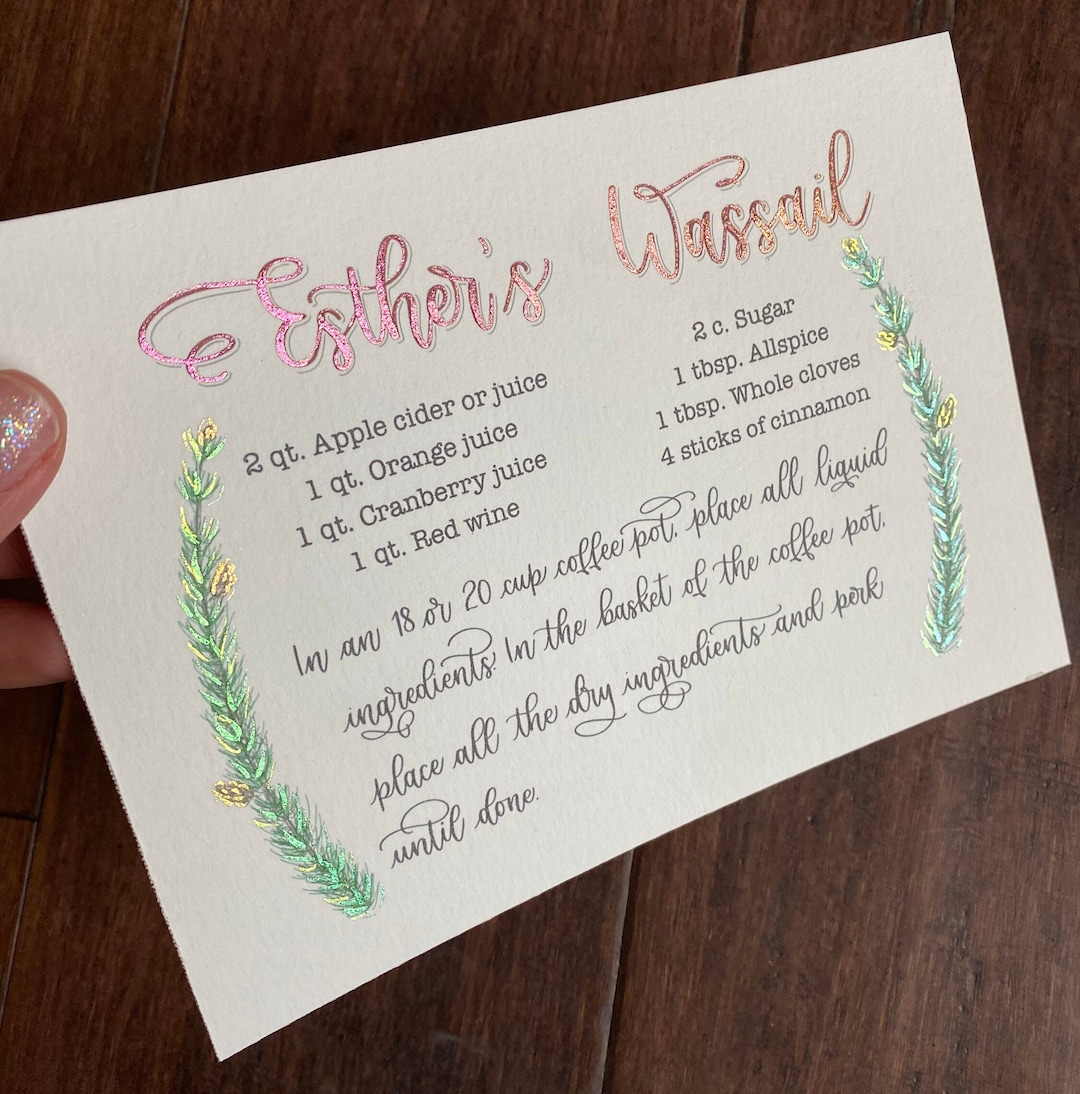 Esther's Wassail
2 qt. Apple cider or juice
1 qt. Orange juice
1 qt. Cranberry juice
1 qt. Red wine
2 c. Sugar
1 tbsp. Allspice
1 tbsp. Whole cloves
4 sticks of cinnamon
In an 18 or 20 cup coffee pot, place all liquid
ingredients. In the basket of the coffee pot,
place all the dry ingredients and perk
until done.